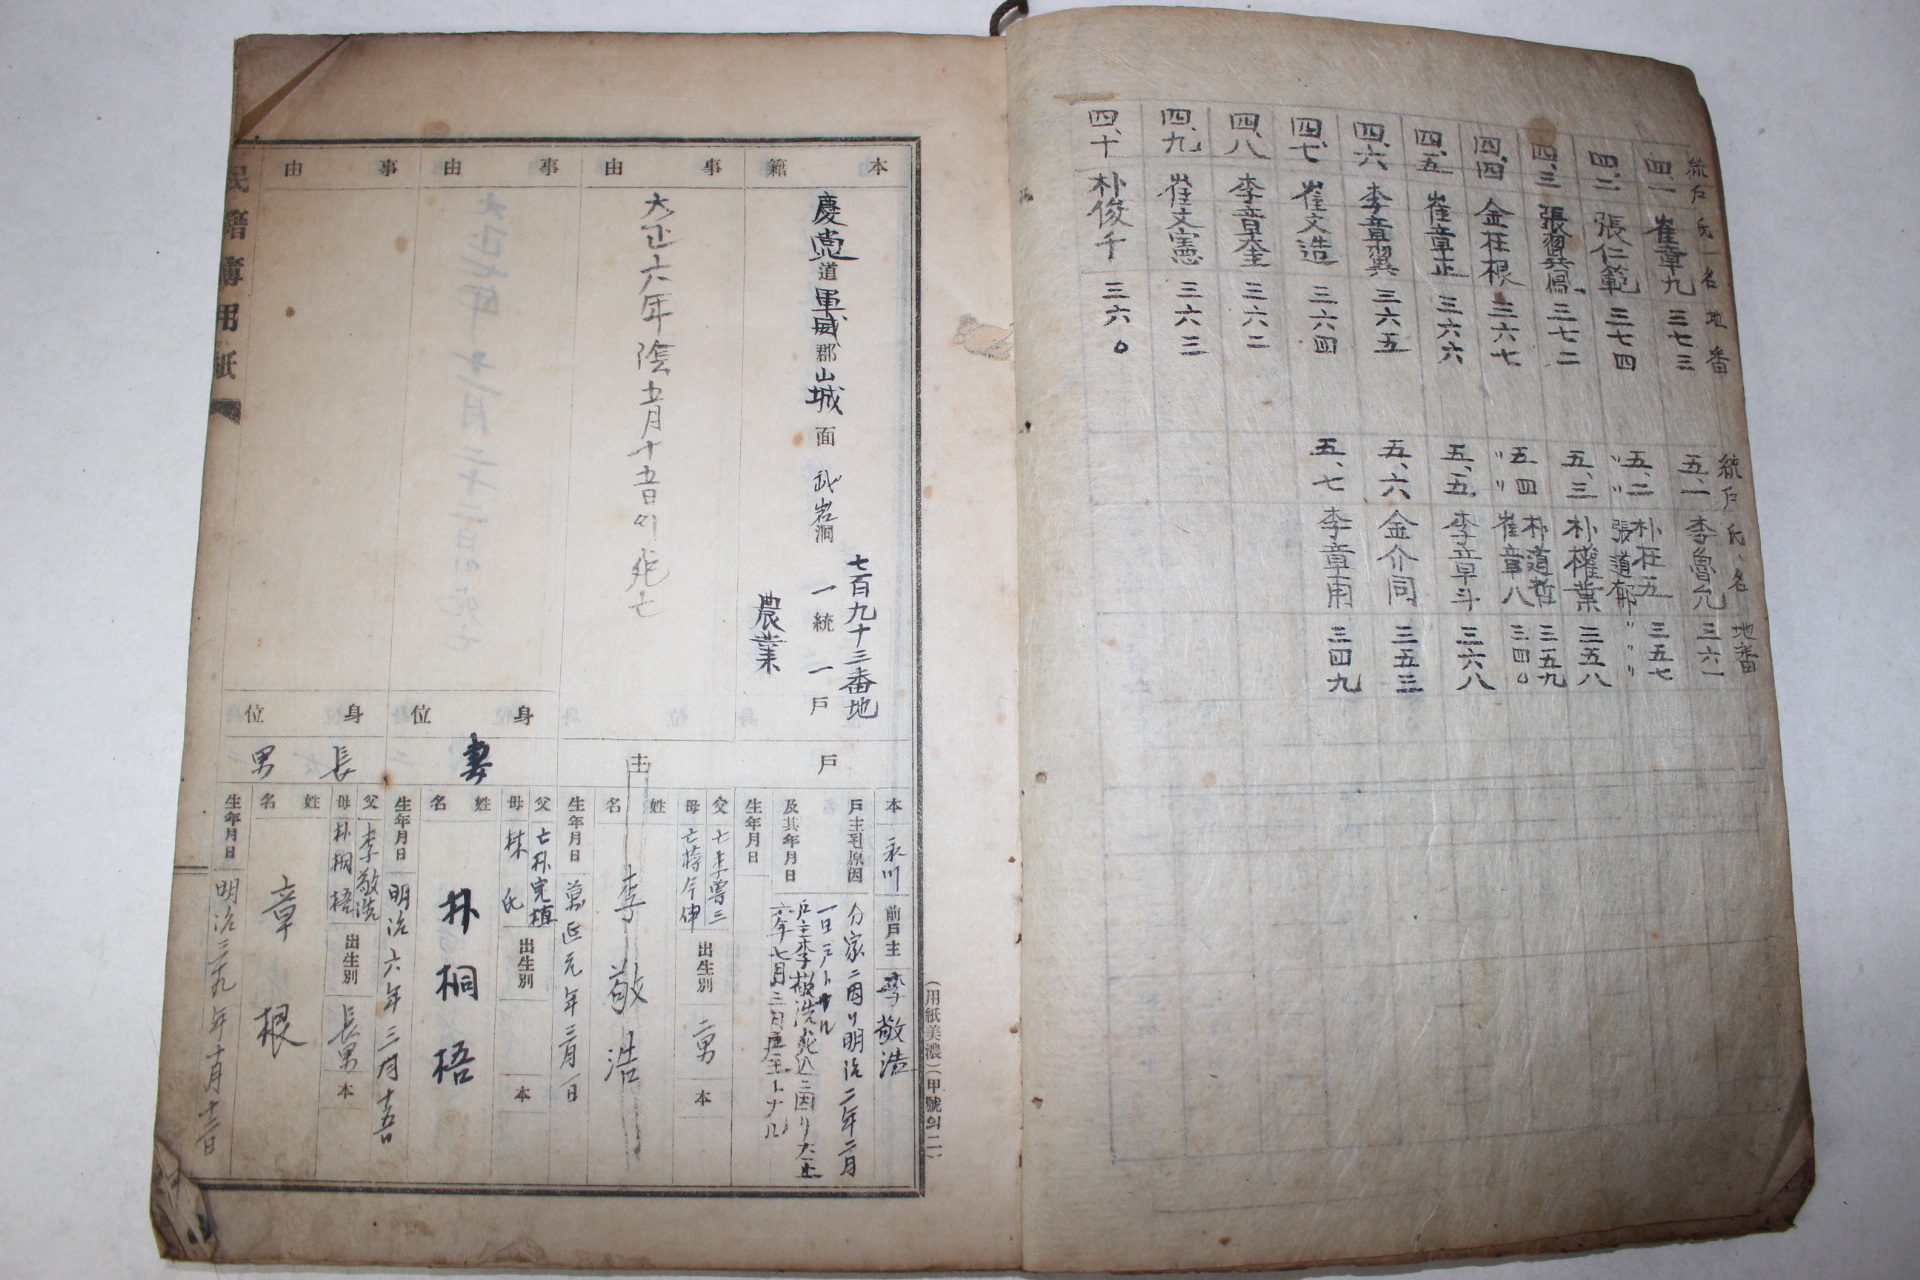 統戶氏名地番
四、一 崔章九 三七三
四、二 張仁範 三七四
四、三 張翼鳳 三七二
四、四 金枉根 三六七
四、五 崔章正 三六六
四、六 李章翼 三六五
四、七 崔文造 三六四
四、八 李章奎 三六二
四、九 崔文憲 三六三
四、十 朴俊千 三六〇
統戶氏、名 地番
五、一 李魯允 三六一
五、二 朴枉五 三五七
〃〃 張道郁 〃〃〃
五、三 朴權業 三五八
五、四 朴道哲 三五九
〃〃 崔章八 三四〇
五、五 李章斗 三六八
五、六 金介同 三五三
五、七 李章甫 三四九
(用紙美濃)(甲號의二)
本籍
慶尙道軍威郡山城面武岩洞
七百九十三番地
一統一戶
農業
戶主
本 永川
前戶主 李敬浩
戶主된原因
及其年月日
分家ニ因リ明治二年二月
一日戶主トナル
戶主李敬浩死亡ニ因リ大正
六年七月三日戶主トナル
生年月日
事由
大正六年陰五月十五日에死亡
父 亡李曾三
母 亡蔣今伸
出生別 二男
本
姓名
李敬浩
生年月日 萬延元年三月一日
事由
身位
妻
父 亡朴完植
母 林氏
出生別
本
姓名
朴桐梧
生年月日 明治六年三月十五日
事由
身位
長男
父 李敬浩
母 朴桐梧
出生別 長男
本
姓名
章根
生年月日 明治三十九年十月十三日
民籍簿用紙